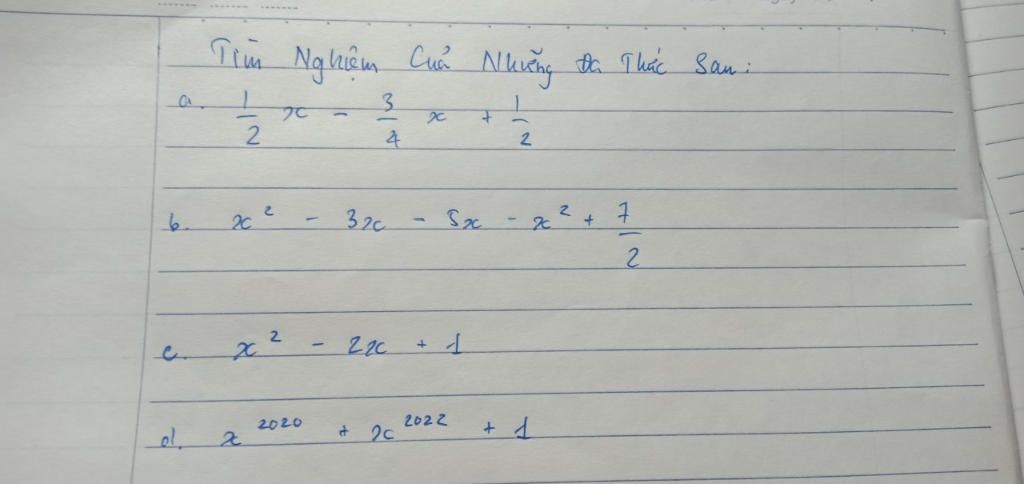 Tìm Nghiệm Của Những Đa Thức Sau:
a. 1/2 x - 3/4 x + 1/2
b. x² - 3x - 5x - x² + 7/2
c. x² - 2x + 1
d. x²⁰²⁰ + x²⁰²² + 1